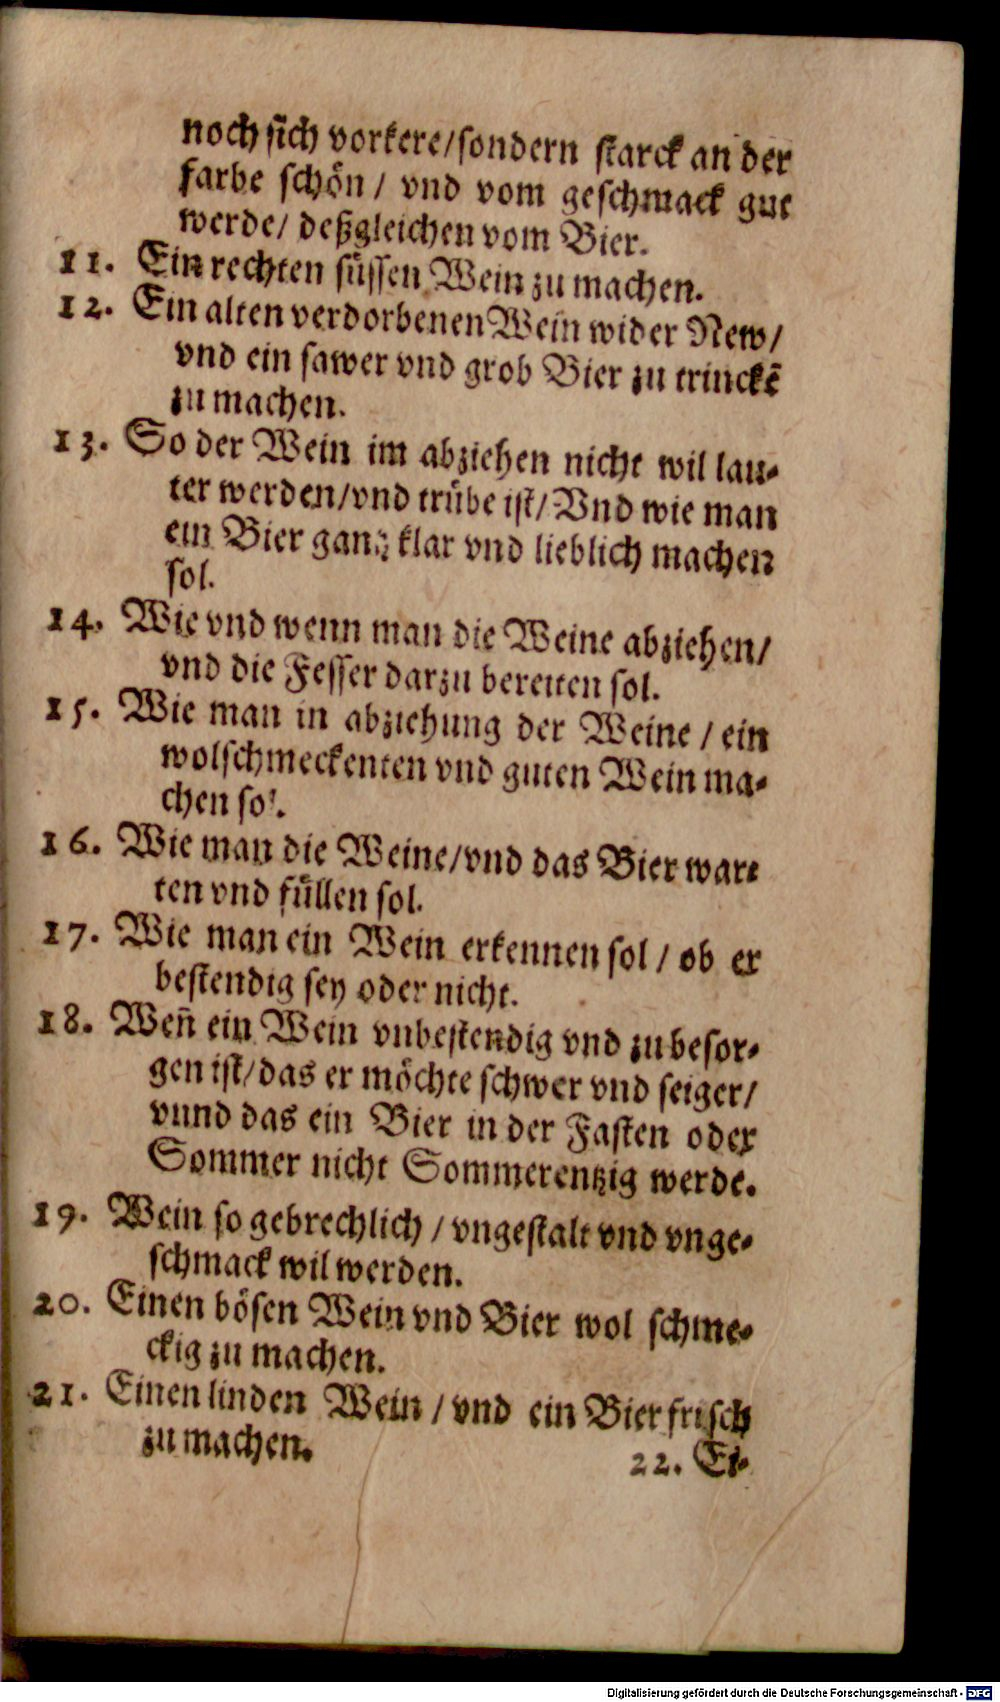 noch sich vorkere/sondern starck an der
farbe schön / vnd vom geschmack gut
werde/ deßgleichen vom Bier.
11. Ein rechten süssen Wein zu machen.
12. Ein alten verdorbenen Wein wider New/
vnd ein sawer vnd grob Bier zu trinckē
zu machen.
13. So der Wein im abziehen nicht wil lau-
ter werden/vnd trübe ist/ Vnd wie man
ein Bier gantz klar vnd lieblich machen
sol.
14. Wie vnd wenn man die Weine abziehen/
vnd die Fesser darzu bereiten sol.
15. Wie man in abziehung der Weine / ein
wolschmeckenten vnd guten Wein ma-
chen sol.
16. Wie man die Weine/vnd das Bier war-
ten vnd füllen sol.
17. Wie man ein Wein erkennen sol / ob er
bestendig sey oder nicht.
18. Weñ ein Wein vnbestendig vnd zu besor-
gen ist/das er möchte schwer vnd seiger/
vnnd das ein Bier in der Fasten oder
Sommer nicht Sommerentzig werde.
19. Wein so gebrechlich / vngestalt vnd vnge-
schmack wil werden.
20. Einen bösen Wein vnd Bier wol schme-
ckig zu machen.
21. Einen linden Wein / vnd ein Bier frisch
zu machen.
22. Ei-
Digitalisierung gefördert durch die Deutsche Forschungsgemeinschaft - DFG